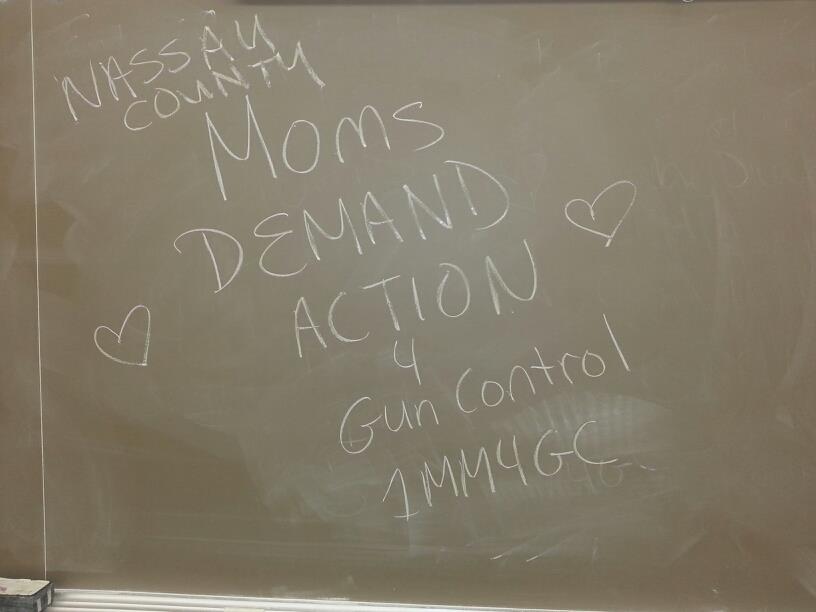 NASSAU
COUNTY
Moms
DEMAND
ACTION
4
Gun Control
1MM4GC